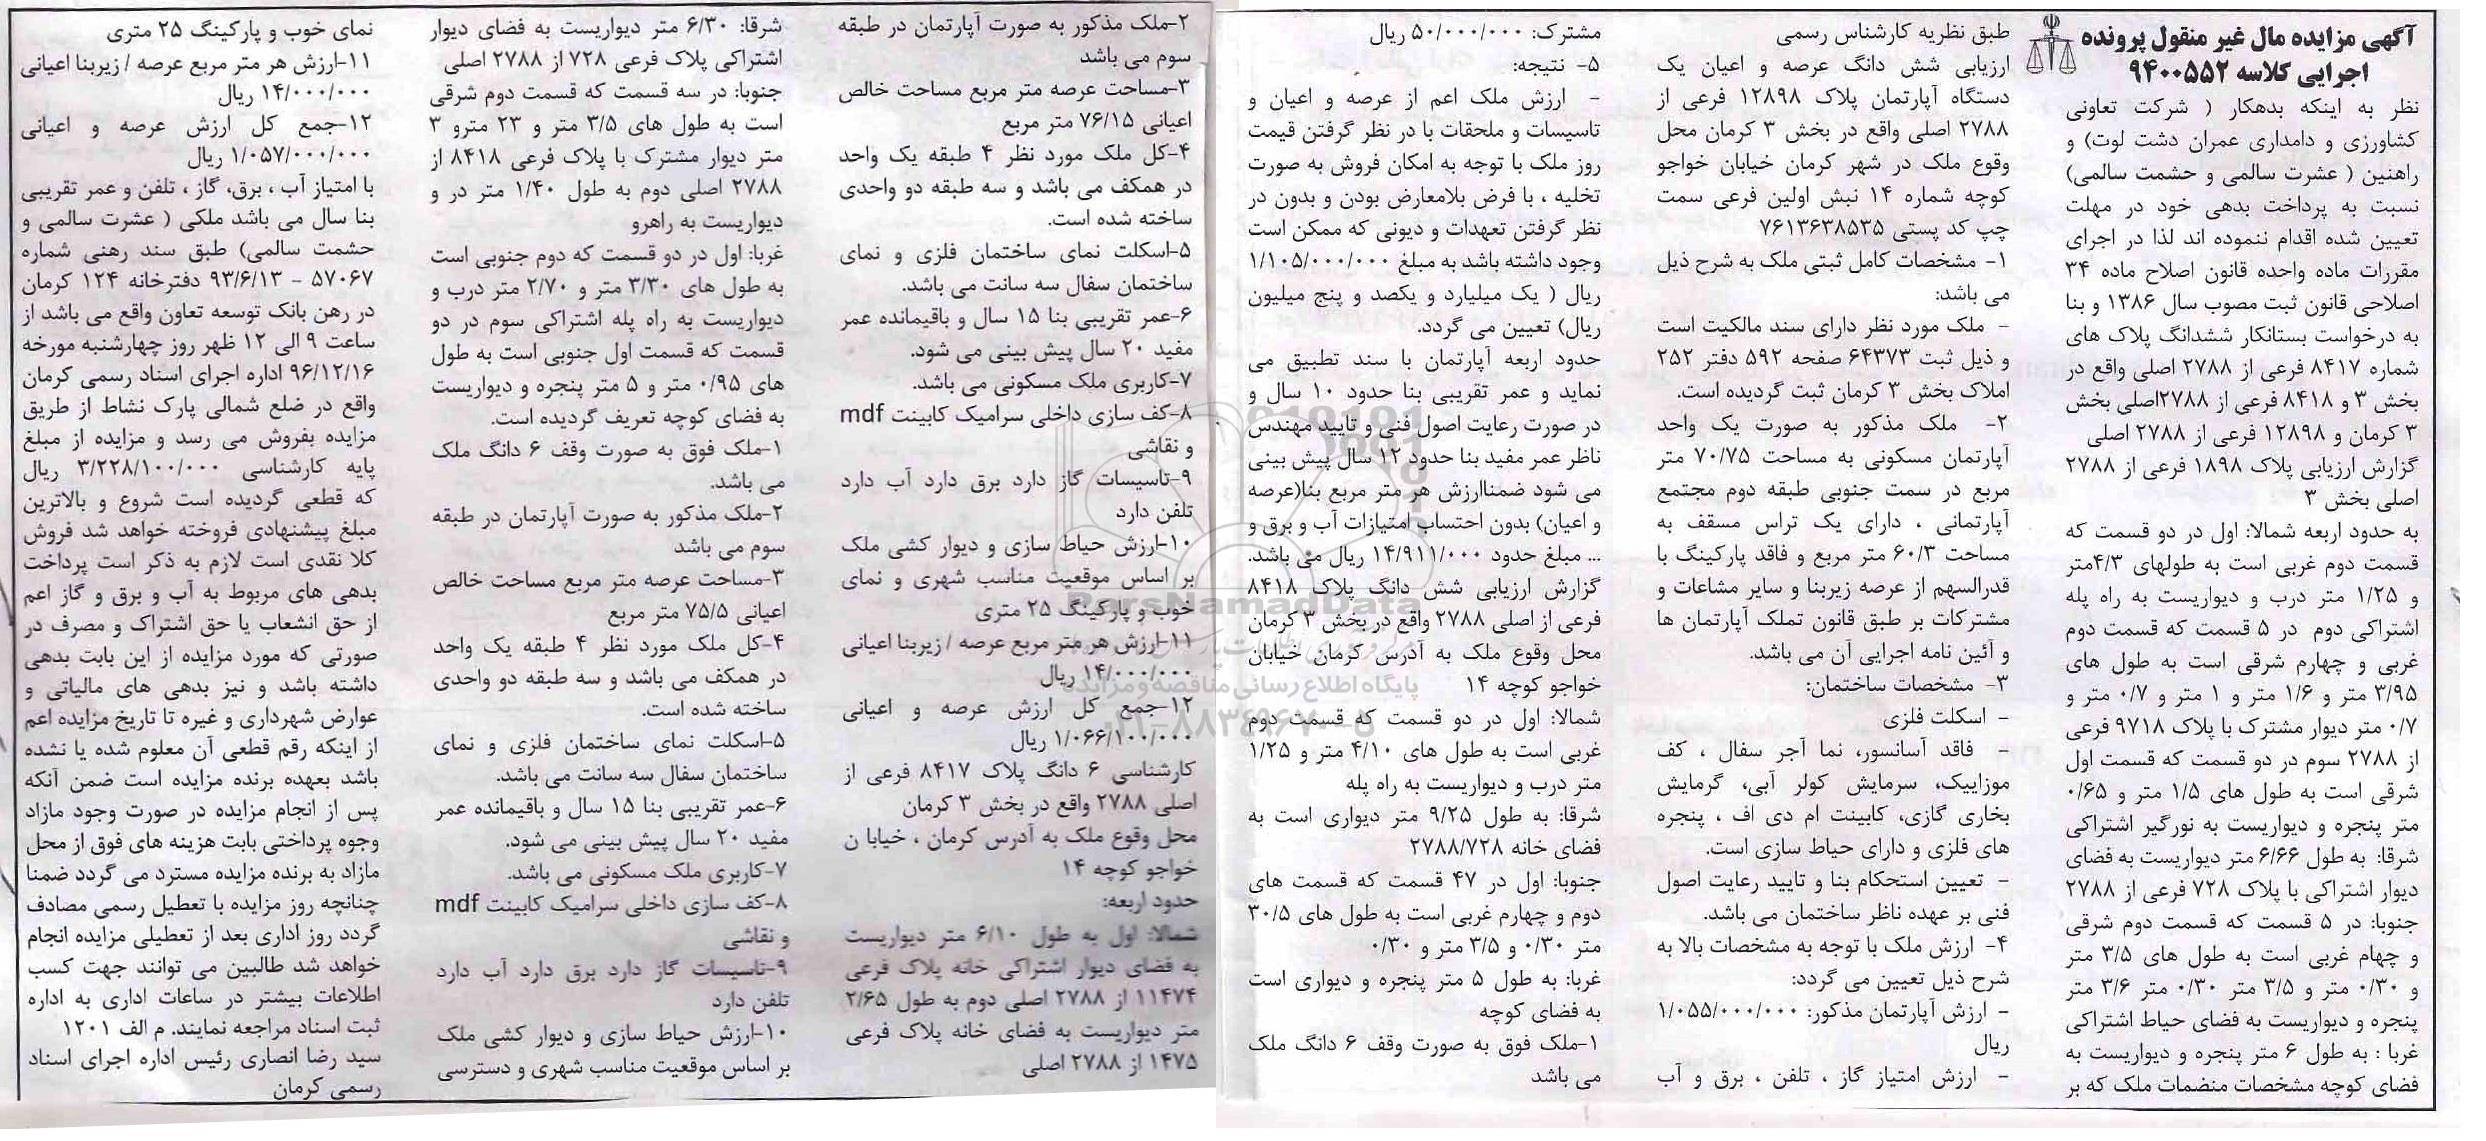 آگهی مزایده مال غیر منقول پرونده
اجرایی کلاسه ۹۴۰۰۵۵۲
نظر به اینکه بدهکار ( شرکت تعاونی
کشاورزی و دامداری عمران دشت لوت) و
راهنین ( عشرت سالمی و حشمت سالمی)
نسبت به پرداخت بدهی خود در مهلت
تعیین شده اقدام ننموده اند لذا در اجرای
مقررات ماده واحده قانون اصلاح ماده ۳۴
اصلاحی قانون ثبت مصوب سال ۱۳۸۶ و بنا
به درخواست بستانکار ششدانگ پلاک های
شماره ۸۴۱۷ فرعی از ۲۷۸۸ اصلی واقع در
بخش ۳ و ۸۴۱۸ فرعی از ۲۷۸۸اصلی بخش
۳ کرمان و ۱۲۸۹۸ فرعی از ۲۷۸۸ اصلی
گزارش ارزیابی پلاک ۱۸۹۸ فرعی از ۲۷۸۸
اصلی بخش ۳
به حدود اربعه شمالا: اول در دو قسمت که
قسمت دوم غربی است به طولهای ۴/۳متر
و ۱/۲۵ متر درب و دیواریست به راه پله
اشتراکی دوم در ۵ قسمت که قسمت دوم
غربی و چهارم شرقی است به طول های
۳/۹۵ متر و ۱/۶ متر و ۱ متر و ۰/۷ متر و
۰/۷ متر دیوار مشترک با پلاک ۹۷۱۸ فرعی
از ۲۷۸۸ سوم در دو قسمت که قسمت اول
شرقی است به طول های ۱/۵ متر و ۰/۶۵
متر پنجره و دیواریست به نورگیر اشتراکی
شرقا: به طول ۶/۶۶ متر دیواریست به فضای
دیوار اشتراکی با پلاک ۷۲۸ فرعی از ۲۷۸۸
جنوبا: در ۵ قسمت که قسمت دوم شرقی
و چهام غربی است به طول های ۳/۵ متر
و ۰/۳۰ متر و ۳/۵ متر ۰/۳۰ متر ۳/۶ متر
پنجره و دیواریست به فضای حیاط اشتراکی
غربا : به طول ۶ متر پنجره و دیواریست به
فضای کوچه مشخصات منضمات ملک که بر
طبق نظریه کارشناس رسمی
ارزیابی شش دانگ عرصه و اعیان یک
دستگاه آپارتمان پلاک ۱۲۸۹۸ فرعی از
۲۷۸۸ اصلی واقع در بخش ۳ کرمان محل
وقوع ملک در شهر کرمان خیابان خواجو
کوچه شماره ۱۴ نبش اولین فرعی سمت
چپ کد پستی ۷۶۱۳۶۳۸۵۳۵
۱- مشخصات کامل ثبتی ملک به شرح ذیل
می باشد:
- ملک مورد نظر دارای سند مالکیت است
و ذیل ثبت ۶۴۳۷۳ صفحه ۵۹۲ دفتر ۲۵۲
املاک بخش ۳ کرمان ثبت گردیده است.
۲- ملک مذکور به صورت یک واحد
آپارتمان مسکونی به مساحت ۷۰/۷۵ متر
مربع در سمت جنوبی طبقه دوم مجتمع
آپارتمانی ، دارای یک تراس مسقف به
مساحت ۶۰/۳ متر مربع و فاقد پارکینگ با
قدرالسهم از عرصه زیربنا و سایر مشاعات و
مشترکات بر طبق قانون تملک آپارتمان ها
و آئین نامه اجرایی آن می باشد.
۳- مشخصات ساختمان:
- اسکلت فلزی
- فاقد آسانسور، نما آجر سفال ، کف
موزاییک، سرمایش کولر آبی، گرمایش
بخاری گازی، کابینت ام دی اف ، پنجره
های فلزی و دارای حیاط سازی است.
- تعیین استحکام بنا و تایید رعایت اصول
فنی بر عهده ناظر ساختمان می باشد.
۴- ارزش ملک با توجه به مشخصات بالا به
شرح ذیل تعیین می گردد:
- ارزش آپارتمان مذکور: ۱/۰۵۵/۰۰۰/۰۰۰
ریال
- ارزش امتیاز گاز ، تلفن ، برق و آب
مشترک: ۵۰/۰۰۰/۰۰۰ ریال
۵- نتیجه:
- ارزش ملک اعم از عرصه و اعیان و
تاسیسات و ملحقات با در نظر گرفتن قیمت
روز ملک با توجه به امکان فروش به صورت
تخلیه ، با فرض بلامعارض بودن و بدون در
نظر گرفتن تعهدات و دیونی که ممکن است
وجود داشته باشد به مبلغ ۱/۱۰۵/۰۰۰/۰۰۰
ریال ( یک میلیارد و یکصد و پنج میلیون
ریال) تعیین می گردد.
حدود اربعه آپارتمان با سند تطبیق می
نماید و عمر تقریبی بنا حدود ۱۰ سال و
در صورت رعایت اصول فنی و تایید مهندس
ناظر عمر مفید بنا حدود ۱۲ سال پیش بینی
می شود ضمناارزش هر متر مربع بنا(عرصه
و اعیان) بدون احتساب امتیازات آب و برق و
... مبلغ حدود ۱۴/۹۱۱/۰۰۰ ریال می باشد.
گزارش ارزیابی شش دانگ پلاک ۸۴۱۸
فرعی از اصلی ۲۷۸۸ واقع در بخش ۳ کرمان
محل وقوع ملک به آدرس کرمان خیابان
خواجو کوچه ۱۴
شمالا: اول در دو قسمت که قسمت دوم
غربی است به طول های ۴/۱۰ متر و ۱/۲۵
متر درب و دیواریست به راه پله
شرقا: به طول ۹/۲۵ متر دیواری است به
فضای خانه ۲۷۸۸/۷۲۸
جنوبا: اول در ۴۷ قسمت که قسمت های
دوم و چهارم غربی است به طول های ۳۰/۵
متر ۰/۳۰ و ۳/۵ متر و ۰/۳۰
غربا: به طول ۵ متر پنجره و دیواری است
به فضای کوچه
۱-ملک فوق به صورت وقف ۶ دانگ ملک
می باشد
۲-ملک مذکور به صورت آپارتمان در طبقه
سوم می باشد
۳-مساحت عرصه متر مربع مساحت خالص
اعیانی ۷۶/۱۵ متر مربع
۴-کل ملک مورد نظر ۴ طبقه یک واحد
در همکف می باشد و سه طبقه دو واحدی
ساخته شده است.
۵-اسکلت نمای ساختمان فلزی و نمای
ساختمان سفال سه سانت می باشد.
۶-عمر تقریبی بنا ۱۵ سال و باقیمانده عمر
مفید ۲۰ سال پیش بینی می شود.
۷-کاربری ملک مسکونی می باشد.
۸-کف سازی داخلی سرامیک کابینت mdf
و نقاشی
۹-تاسیسات گاز دارد برق دارد آب دارد
تلفن دارد
۱۰-ارزش حیاط سازی و دیوار کشی ملک
بر اساس موقعیت مناسب شهری و نمای
خوب و پارکینگ ۲۵ متری
۱۱-ارزش هر متر مربع عرصه / زیربنا اعیانی
۱۴/۰۰۰/۰۰۰ ریال
۱۲-جمع کل ارزش عرصه و اعیانی
۱/۰۶۶/۱۰۰/۰۰۰ ریال
کارشناسی ۶ دانگ پلاک ۸۴۱۷ فرعی از
اصلی ۲۷۸۸ واقع در بخش ۳ کرمان
محل وقوع ملک به آدرس کرمان ، خیابا ن
خواجو کوچه ۱۴
حدود اربعه:
شمالا: اول به طول ۶/۱۰ متر دیواریست
به فضای دیوار اشتراکی خانه پلاک فرعی
۱۱۴۷۴ از ۲۷۸۸ اصلی دوم به طول ۲/۶۵
متر دیواریست به فضای خانه پلاک فرعی
۱۴۷۵ از ۲۷۸۸ اصلی
شرقا: ۶/۳۰ متر دیواریست به فضای دیوار
اشتراکی پلاک فرعی ۷۲۸ از ۲۷۸۸ اصلی
جنوبا: در سه قسمت که قسمت دوم شرقی
است به طول های ۳/۵ متر و ۲۳ مترو ۳
متر دیوار مشترک با پلاک فرعی ۸۴۱۸ از
۲۷۸۸ اصلی دوم به طول ۱/۴۰ متر در و
دیواریست به راهرو
غربا: اول در دو قسمت که دوم جنوبی است
به طول های ۳/۳۰ متر و ۲/۷۰ متر درب و
دیواریست به راه پله اشتراکی سوم در دو
قسمت که قسمت اول جنوبی است به طول
های ۰/۹۵ متر و ۵ متر پنجره و دیواریست
به فضای کوچه تعریف گردیده است.
۱-ملک فوق به صورت وقف ۶ دانگ ملک
می باشد.
۲-ملک مذکور به صورت آپارتمان در طبقه
سوم می باشد
۳-مساحت عرصه متر مربع مساحت خالص
اعیانی ۷۵/۵ متر مربع
۴-کل ملک مورد نظر ۴ طبقه یک واحد
در همکف می باشد و سه طبقه دو واحدی
ساخته شده است.
۵-اسکلت نمای ساختمان فلزی و نمای
ساختمان سفال سه سانت می باشد.
۶-عمر تقریبی بنا ۱۵ سال و باقیمانده عمر
مفید ۲۰ سال پیش بینی می شود.
۷-کاربری ملک مسکونی می باشد.
۸-کف سازی داخلی سرامیک کابینت mdf
و نقاشی
۹-تاسیسات گاز دارد برق دارد آب دارد
تلفن دارد
۱۰-ارزش حیاط سازی و دیوار کشی ملک
بر اساس موقعیت مناسب شهری و دسترسی
نمای خوب و پارکینگ ۲۵ متری
۱۱-ارزش هر متر مربع عرصه / زیربنا اعیانی
۱۴/۰۰۰/۰۰۰ ریال
۱۲-جمع کل ارزش عرصه و اعیانی
۱/۰۵۷/۰۰۰/۰۰۰ ریال
با امتیاز آب ، برق، گاز ، تلفن و عمر تقریبی
بنا سال می باشد ملکی ( عشرت سالمی و
حشمت سالمی) طبق سند رهنی شماره
۵۷۰۶۷ - ۹۳/۶/۱۳ دفترخانه ۱۲۴ کرمان
در رهن بانک توسعه تعاون واقع می باشد از
ساعت ۹ الی ۱۲ ظهر روز چهارشنبه مورخه
۹۶/۱۲/۱۶ اداره اجرای اسناد رسمی کرمان
واقع در ضلع شمالی پارک نشاط از طریق
مزایده بفروش می رسد و مزایده از مبلغ
پایه کارشناسی ۳/۲۲۸/۱۰۰/۰۰۰ ریال
که قطعی گردیده است شروع و بالاترین
مبلغ پیشنهادی فروخته خواهد شد فروش
کلا نقدی است لازم به ذکر است پرداخت
بدهی های مربوط به آب و برق و گاز اعم
از حق انشعاب یا حق اشتراک و مصرف در
صورتی که مورد مزایده از این بابت بدهی
داشته باشد و نیز بدهی های مالیاتی و
عوارض شهرداری و غیره تا تاریخ مزایده اعم
از اینکه رقم قطعی آن معلوم شده یا نشده
باشد بعهده برنده مزایده است ضمن آنکه
پس از انجام مزایده در صورت وجود مازاد
وجوه پرداختی بابت هزینه های فوق از محل
مازاد به برنده مزایده مسترد می گردد ضمنا
چنانچه روز مزایده با تعطیل رسمی مصادف
گردد روز اداری بعد از تعطیلی مزایده انجام
خواهد شد طالبین می توانند جهت کسب
اطلاعات بیشتر در ساعات اداری به اداره
ثبت اسناد مراجعه نمایند. م الف ۱۲۰۱
سید رضا انصاری رئیس اداره اجرای اسناد
رسمی کرمان
ParsNamadData
پایگاه اطلاع رسانی مناقصه و مزایده